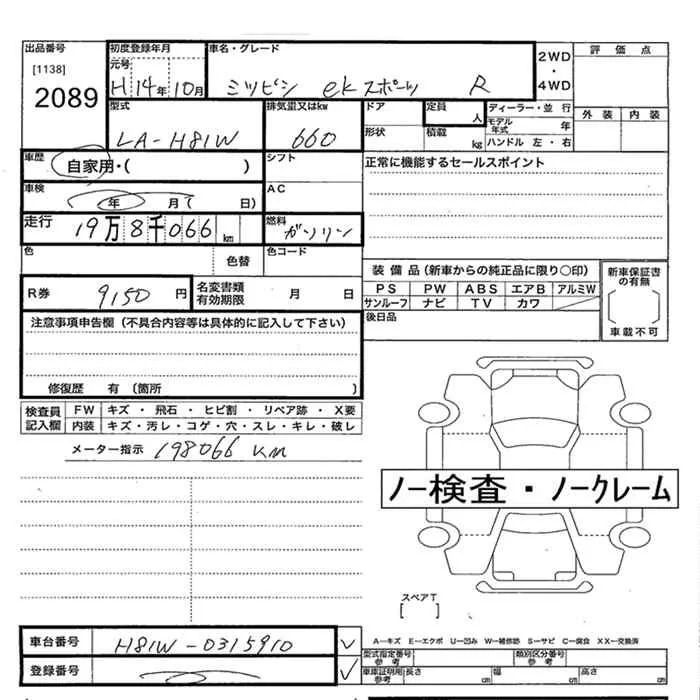 出品番号 初度登録年月 車名・グレード 評価点
[1138] 元号 2WD・4WD
2089 H 14年 10月 ミツビシ ekスポーツ R
型式 排気量又はkw ドア 定員 人 ディーラー・並行 外装 内装
LA-H81W 660 形状 積載 kg モデル年式 年
ハンドル 左・右
車歴 自家用・( ) シフト 正常に機能するセールスポイント
車検 年 月( 日) AC
走行 19万8千066 km 燃料 ガソリン
色 色替 色コード
装備品(新車からの純正品に限り〇印) 新車保証書の有無
R券 9150円 名変書類有効期限 月 日 PS PW ABS エアB アルミW
サンルーフ ナビ TV カワ 車載不可
注意事項申告欄(不具合内容等は具体的に記入して下さい) 後日品
修復歴 有(箇所 )
検査員記入欄 FW キズ・飛石・ヒビ割・リペア跡・X要
内装 キズ・汚レ・コゲ・穴・スレ・キレ・破レ
メーター指示 198066 KM
ノー検査・ノークレーム
スペアT
[ ]
車台番号 H81W-0315910 A—キズ E—エクボ U—凹み W—補修跡 S—サビ C—腐食 XX—交換済
型式指定番号 参考 類別区分番号 参考
登録番号 車庫証明用参考 長さ cm 幅 cm 高さ cm